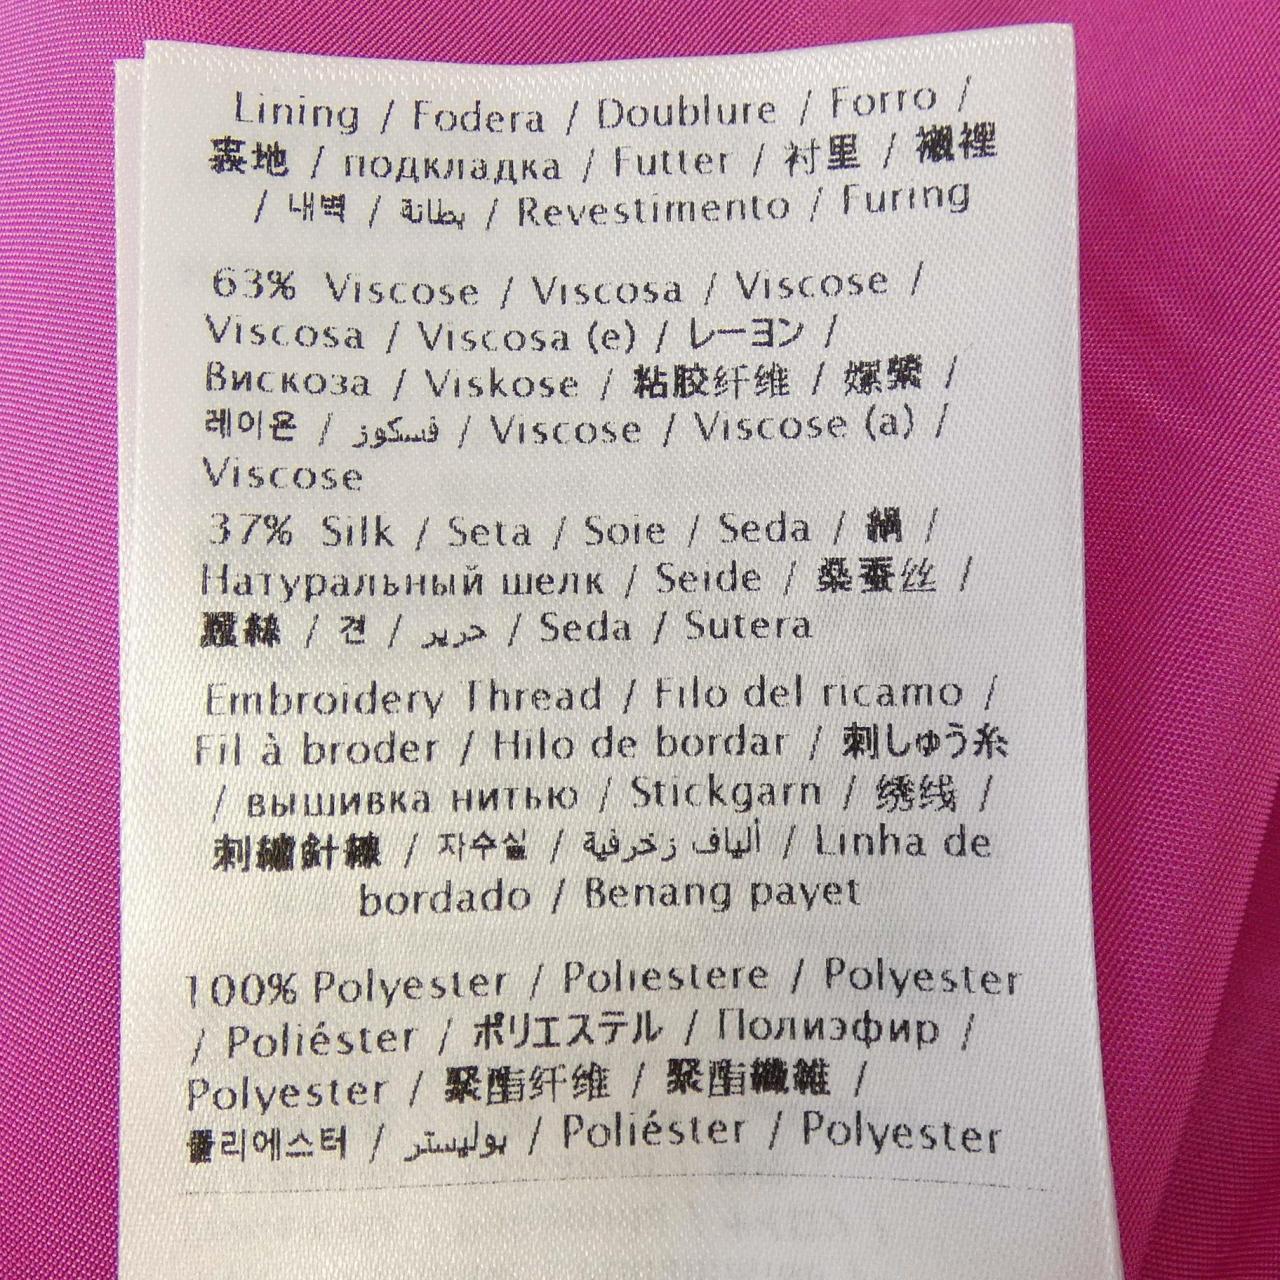 Lining / Fodera / Doublure / Forro /
裏地 / подкладка / Futter / 衬里 / 襯裡
/ 내벽 / بطانة / Revestimento / Furing
63% Viscose / Viscosa / Viscose /
Viscosa / Viscosa (e) / レーヨン /
Вискоза / Viskose / 粘胶纤维 / 嫘縈 /
레이온 / فسكوز / Viscose / Viscose (a) /
Viscose
37% Silk / Seta / Soie / Seda / 絹 /
Натуральный шелк / Seide / 桑蚕丝 /
蠶絲 / 견 / حرير / Seda / Sutera
Embroidery Thread / Filo del ricamo /
Fil à broder / Hilo de bordar / 刺しゅう糸
/ вышивка нитью / Stickgarn / 绣线 /
刺繡針線 / 자수실 / ألياف زخرفية / Linha de
bordado / Benang payet
100% Polyester / Poliestere / Polyester
/ Poliéster / ポリエステル / Полиэфир /
Polyester / 聚酯纤维 / 聚酯纖維 /
폴리에스터 / بوليستر / Poliéster / Polyester